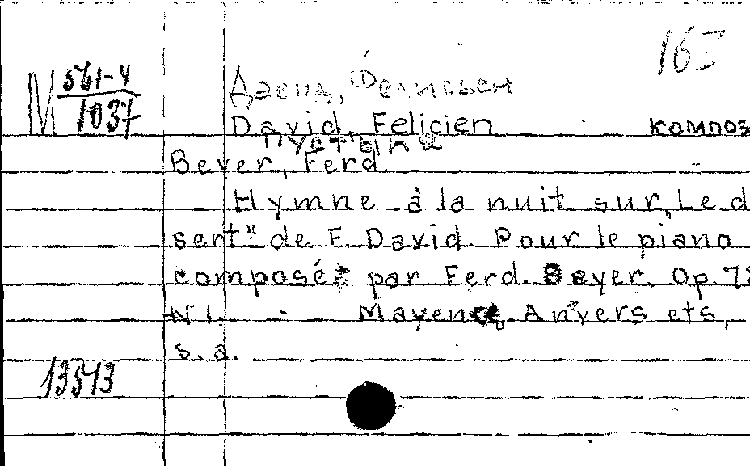 163
М 561-4
1037
Давид, Фелисьен
David, Felicien композ
Пустыня
Beyer, Ferd
Hymne à la nuit sur „Le d
sert" de F. David. Pour le piano
composée par Ferd. Beyer. Op. 72
N 1. - Mayence, Anvers ets,
s.a.
13513